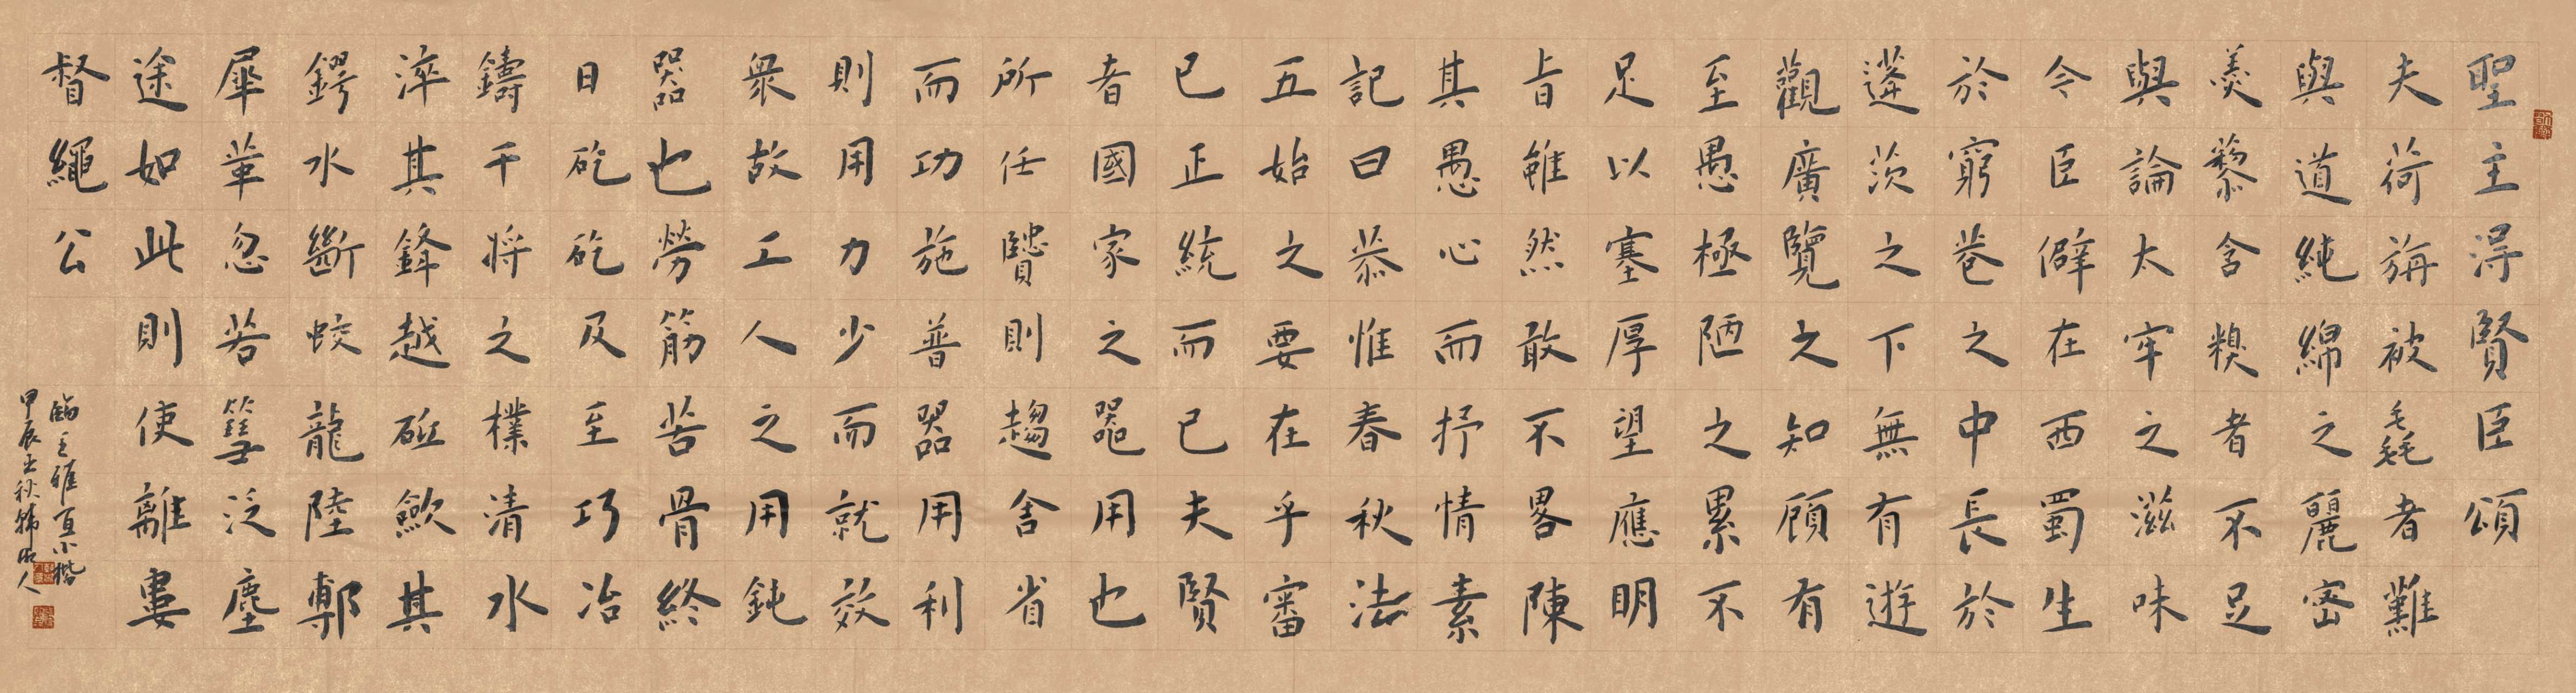 聖主得賢臣頌
夫荷旃被毳者難
與道純綿之麗密
羹藜含糗者不足
與論太牢之滋味
今臣僻在西蜀生
於窮巷之中長於
蓬茨之下無有遊
觀廣覽之知顧有
至愚極陋之累不
足以塞厚望應明
旨雖然敢不畧陳
其愚心而抒情素
記曰恭惟春秋法
五始之要在乎審
已正統而已夫賢
者國家之器用也
所任賢則趨舍省
而功施普器用利
則用力少而就效
衆故工人之用鈍
器也勞筋苦骨終
日矻矻及至巧冶
鑄干將之樸清水
淬其鋒越砥歛其
鍔水斷蛟龍陸剸
犀革忽若篲泛塵
途如此則使離婁
督繩公
臨王雅宜小楷
甲辰之秋